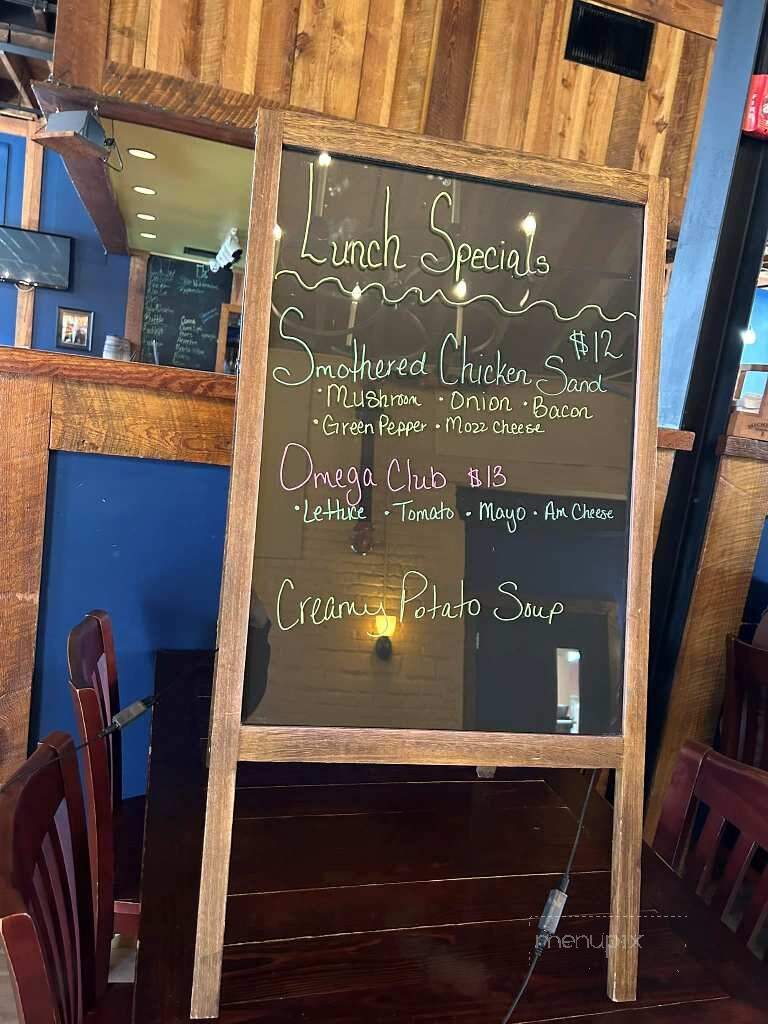 Lunch Specials
$12
Smothered Chicken Sand
• Mushroom • Onion • Bacon
• Green Pepper • Mozz Cheese
Omega Club $13
• Lettuce • Tomato • Mayo • Am Cheese
Creamy Potato Soup
menupix